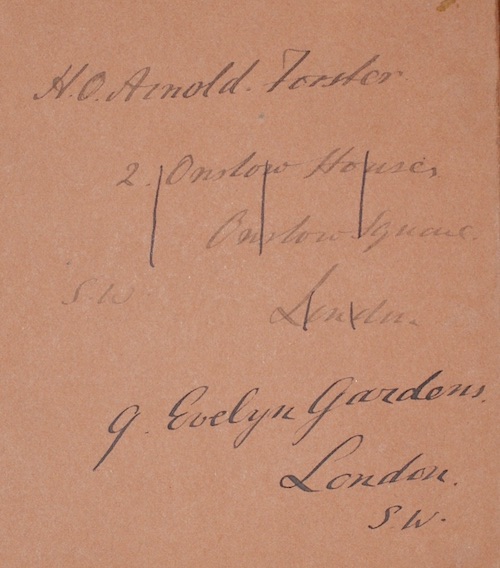 H.O. Arnold. Forster.
2. Onslow Houses,
Onslow Square.
S.W.
London.
9. Evelyn Gardens.
London.
S.W.